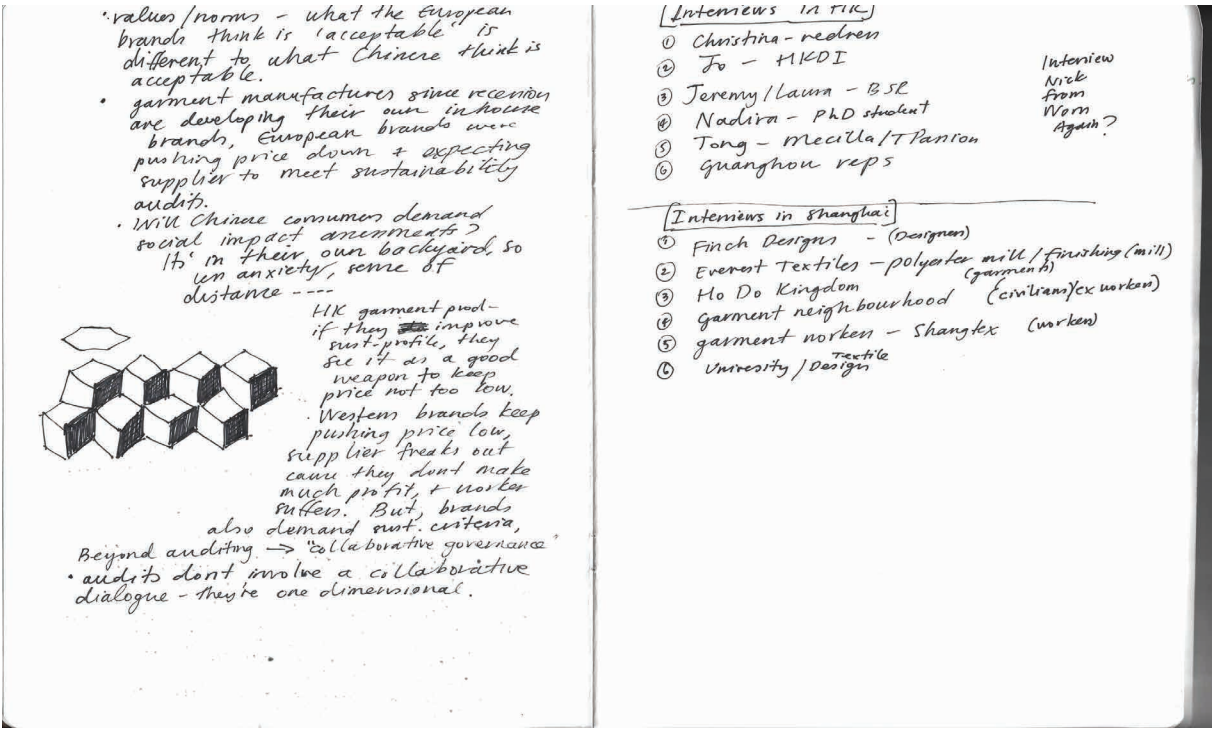 • values/norms - what the European
brands think is 'acceptable' is
different to what Chinese think is
acceptable.
• garment manufactures since recession
are developing their own inhouse
brands, European brands were
pushing price down + expecting
supplier to meet sustainability
audits.
• Will Chinese consumers demand
social impact assessments?
Its' in their own backyard, so
un anxiety, sense of
distance ----
HK garment prod-
if they improve
sust-profile, they
see it as a good
weapon to keep
price not too low.
. Western brands keep
pushing price low,
supplier freaks out
cause they dont make
much profit, + worker
suffers. But, brands
also demand sust. criteria,
Beyond auditing → "collaborative governance"
• audits dont involve a collaborative
dialogue - they're one dimensional.
Interviews in HK
① Christina - redress
② Jo - HKDI
③ Jeremy/Laura - BSR
④ Nadira - PhD student
⑤ Tong - Mecilla/TPanion
⑥ Guanghou reps
Interview
Nick
from
Worn
Again?
Interviews in Shanghai
① Finch Designs - (Designers)
② Everest Textiles - polyester mill / finishing (mill)
③ Ho Do Kingdom (garments)
④ garment neighbourhood (civilians/ex workers)
⑤ garment workers - Shangtex (workers)
⑥ Univesity / Textile Design